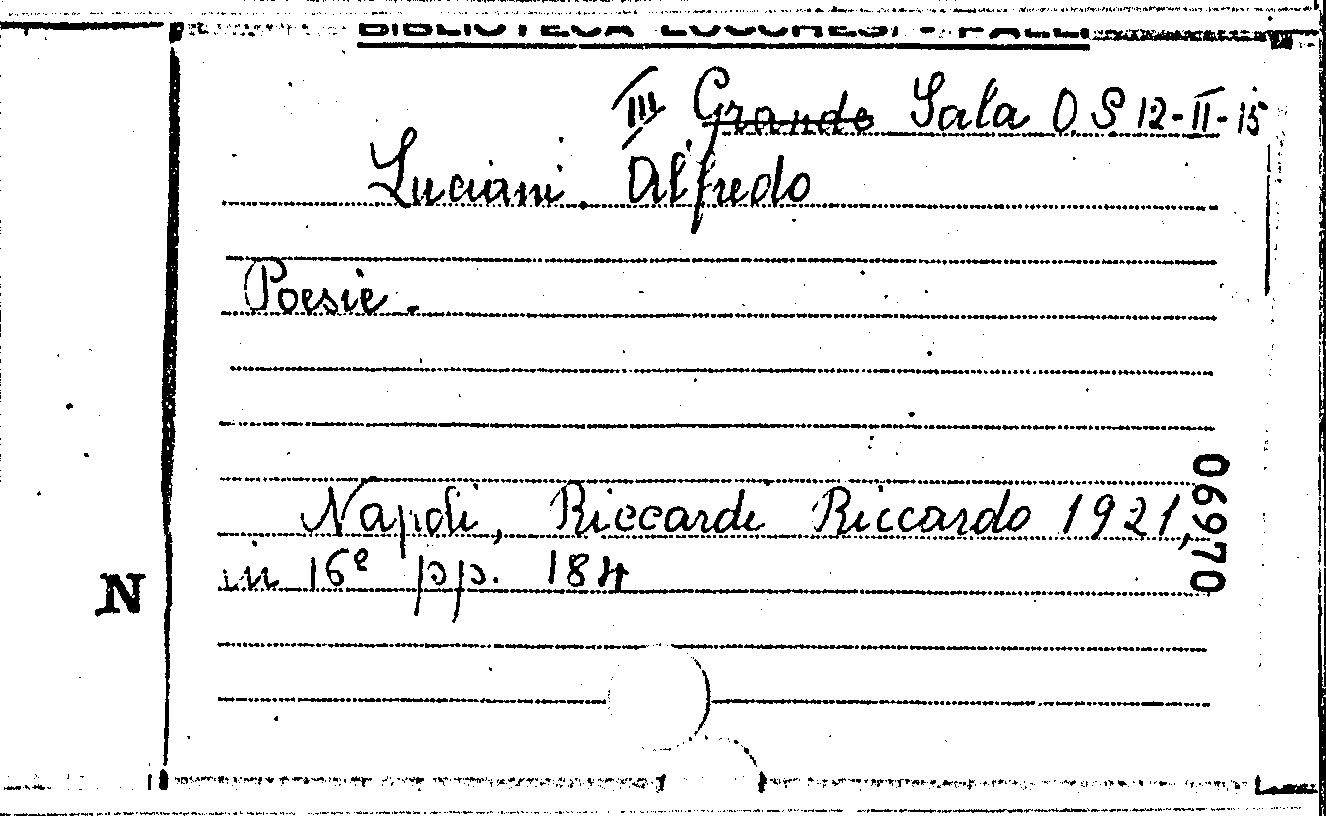 BIBLIOTECA LUCCHESI - PALLI
III Grande Sala O S 12-II-15
Luciani. Alfredo
Poesie.
Napoli, Riccardi Riccardo 1921,
in 16º pp. 184
06970
N